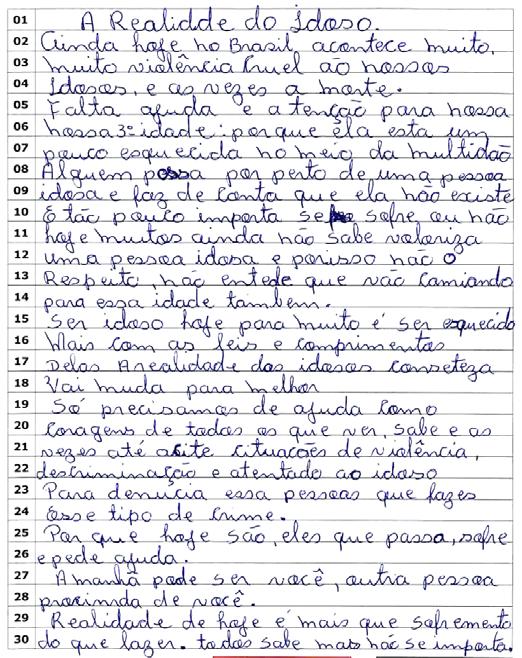 01 A Realidde do Idoso.
02 Ainda hoje no Brasil acontece muito,
03 muito violência Cruel aõ nossos
04 Idosos, e as vezes a morte.
05 Falta ajuda e a tenção para nossa
06 nossa 3ª idade: porque ela esta um
07 pouco esquecida no meio da multidão
08 Alguem possa por perto de uma pessoa
09 idosa e faz de conta que ela não existe
10 E tão pouco importa se sofre, ou não
11 hoje muitos ainda não sabe valoriza
12 uma pessoa idosa e porisso não o
13 Respeito, não entede que vão Camiando
14 para essa idade tambem.
15 Ser idoso hoje para muito é ser esquecido
16 Mais com as leis e comprimentos
17 Delas Arealidade dos idosos conseteza
18 Vai muda para melhor
19 Só precisamos de ajuda como
20 Coragens de todos os que ver, sabe e as
21 vezes até aseite cituações de violência,
22 descriminação e atentado ao idoso
23 Para denucia essa pessoas que fazes
24 esse tipo de crime.
25 Por que hoje são, eles que passa, sofre
26 e pede ajuda.
27 Amanhã pode ser você, outra pessoa
28 procinida de você.
29 Realidade de hoje é mais que sofremento
30 do que lazer. todos sabe mas não se importa.